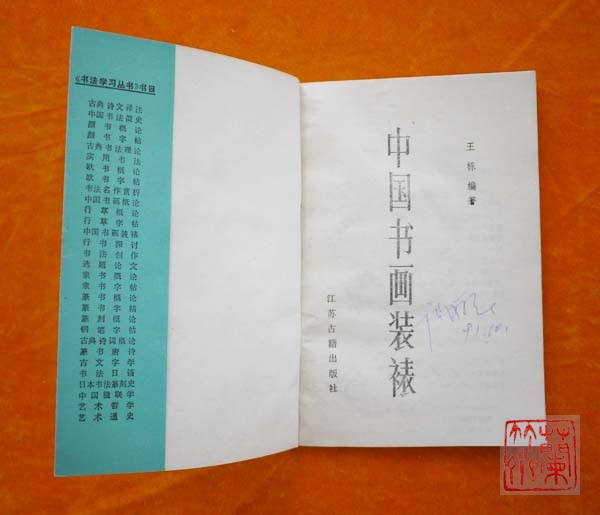 《书法学习丛书》书目
古典诗文译注
中国书法简史
颜书概论
颜书字帖
古典书法理论
实用书法
欧书概论
欧书字帖
书法名作赏析
中国书画论
行草概论
行草字帖
中国书画装裱
书法创作
隶书字帖
篆书概论
篆书字帖
篆刻概论
钢笔字帖
古典诗词概论
篆书唐诗
古文字学
书法日语
日本书法篆刻史
中国楹联学
艺术哲学
艺术通史
王栋编著
中国书画装裱
江苏古籍出版社
蘭